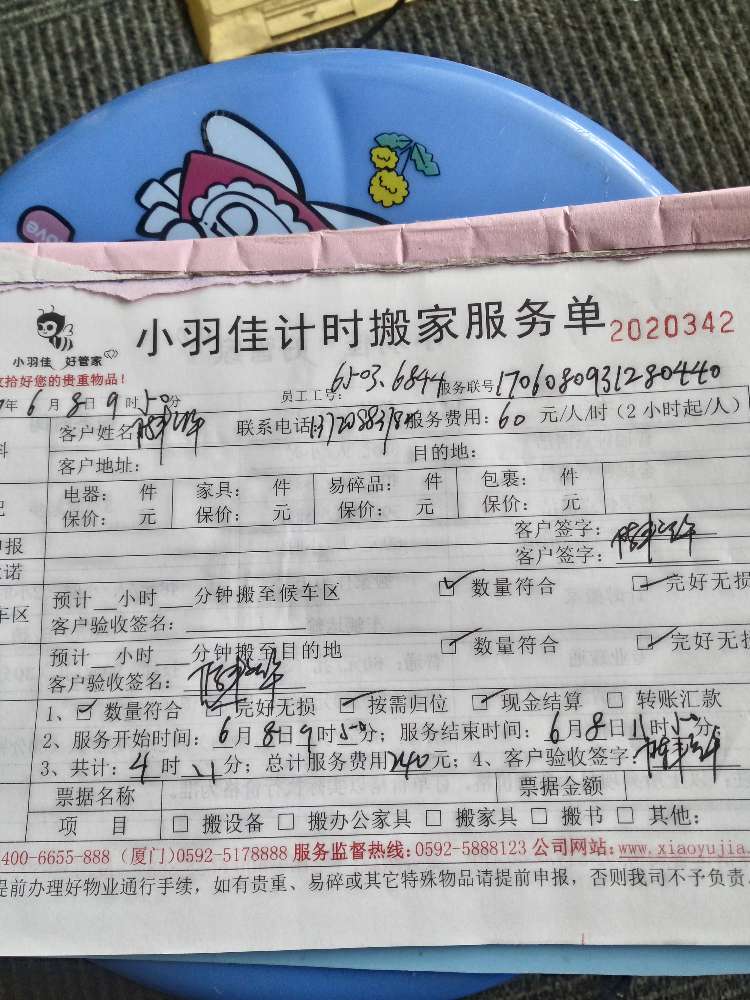 love
小羽佳计时搬家服务单 2020342
小羽佳 好管家
收拾好您的贵重物品!
年6月8日9时50分 员工工号: 6503.6844 服务联号1706080931280440
客户姓名: 联系电话: 服务费用: 60 元/人/时 (2小时起/人)
客户地址: 目的地:
电器: 件 家具: 件 易碎品: 件 包裹: 件
保价: 元 保价: 元 保价: 元 保价: 元
申报 客户签字:
承诺 客户签字:
预计__小时___分钟搬至候车区 ☑ 数量符合 ☑ 完好无损
车区 客户验收签名:
预计__小时___分钟搬至目的地 ☑ 数量符合 ☑ 完好无损
客户验收签名:
1、☑ 数量符合 ☑ 完好无损 ☑ 按需归位 ☑ 现金结算 □ 转账汇款
2、服务开始时间: 6月8日9时50分; 服务结束时间: 6月8日11时50分
3、共计: 4时 分; 总计服务费用240元; 4、客户验收签字:
票据名称 票据金额
项 目 □ 搬设备 □ 搬办公家具 □ 搬家具 □ 搬书 □ 其他:
400-6655-888 (厦门)0592-5178888 服务监督热线:0592-5888123 公司网站:www.xiaoyujia.
提前办理好物业通行手续, 如有贵重、易碎或其它特殊物品请提前申报, 否则我司不予负责